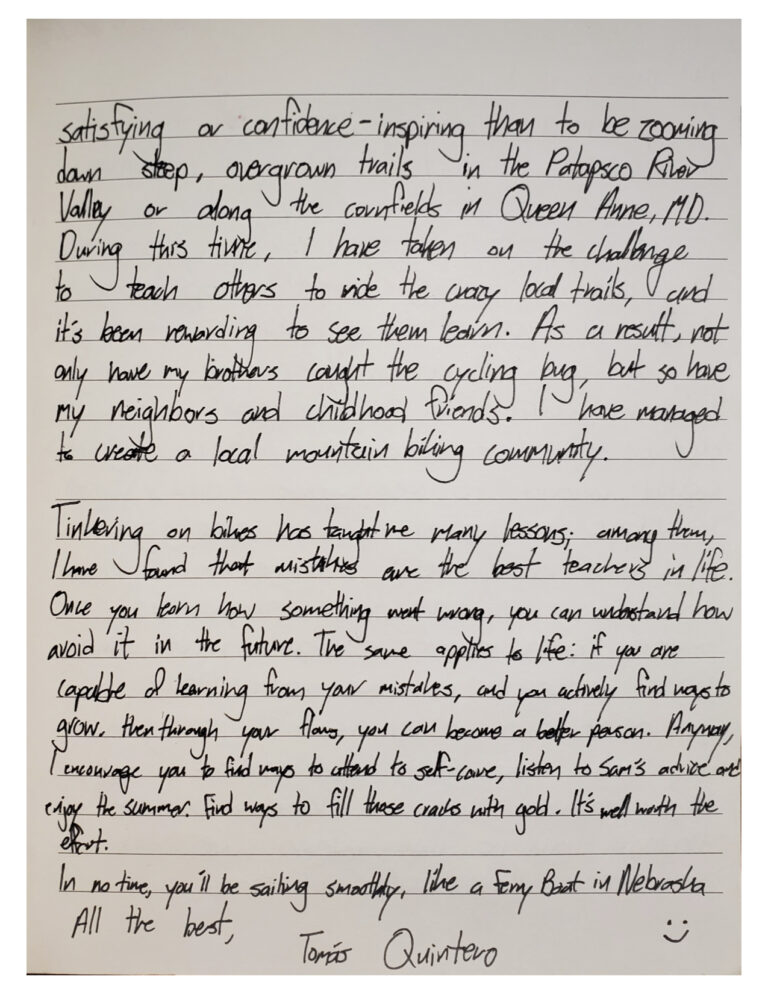 satisfying or confidence-inspiring than to be zooming
down steep, overgrown trails in the Patapsco River
Valley or along the cornfields in Queen Anne, MD.
During this time, I have taken on the challenge
to teach others to ride the crazy local trails, and
it's been rewarding to see them learn. As a result, not
only have my brothers caught the cycling bug, but so have
my neighbors and childhood friends. I have managed
to create a local mountain biking community.
Tinkering on bikes has taught me many lessons; among them,
I have found that mistakes are the best teachers in life.
Once you learn how something went wrong, you can understand how
avoid it in the future. The same applies to life: if you are
capable of learning from your mistakes, and you actively find ways to
grow, then through your flaws, you can become a better person. Anyway,
I encourage you to find ways to attend to self-care, listen to Sam's advice and
enjoy the summer. Find ways to fill those cracks with gold. It's well worth the
effort.
In no time, you'll be sailing smoothly, like a Ferry Boat in Nebraska
All the best,
Tomás Quintero :)